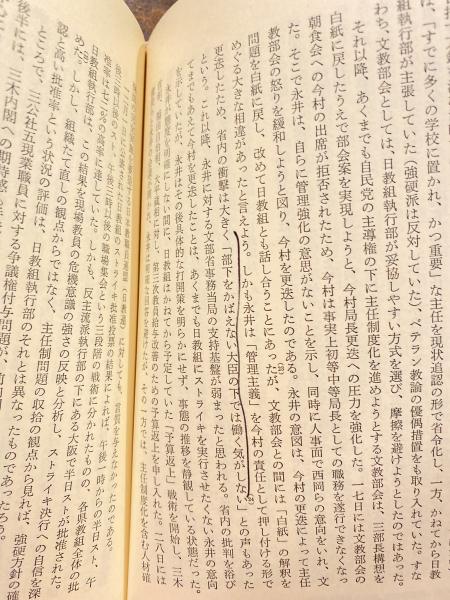 は、「すでに多くの学校に置かれ、かつ重要」な主任を現状追認の形で省令化し、一方、かねてから日教
組執行部が主張していた(強硬派は反対していた)ベテラン教諭の優偶措置をも取り入れていた。すな
わち、文教部会としては、日教組執行部が妥協しやすい方式を選び、摩擦を避けようとしたのであった。
それ以降、あくまでも自民党の主導権の下に主任制度化を進めようとする文教部会は、三部長構想を
白紙に戻したうえで部会案を実現しようと、今村局長更迭への圧力を強化した。一七日には文教部会の
朝食会への今村の出席が拒否されたため、今村は事実上初等中等局長としての職務を遂行できなくなっ
た。そこで永井は、自らに管理強化の意思がないことを示し、同時に人事面で西岡らの意向をいれ、文
教部会の怒りを緩和しようと図り、今村を更迭したのである。永井の意図は、今村の更迭によって主任
問題を白紙に戻し、改めて日教組とも話し合うことにあったが、文教部会との間には「白紙」の解釈を
めぐる大きな相違があったと言えよう。しかも永井は「管理主義」を今村の責任として押し付ける形で
更迭したため、省内の衝撃は大きく、「部下をかばえない大臣の下では働く気がない」との声もあった
という。これ以降、永井に対する文部省事務当局の支持基盤が弱まったと思われる。省内の批判を浴び
てまでもあえて今村を更迭したことは、あくまでも日教組にストライキを実行させたくない永井の意向
を示していたが、永井はその後具体的な打開策を明らかにせず、事態の推移を静観している状態だった。
日教組はかねてから予定していた「予算返上」戦術を開始し、三木
第三次教員給与改善のための予算返上を申し入れた。二八日には
その一方では、主任制度化を含む人材確
に対しても、言質を与えなかったのである。
日教組のストライキ批准投票の結果によれば、午後一時からの半日スト、午
後三時以後の
四時以後の職場集会という三段階の戦術に分かれたものの、各県教組全体の批
准率は
%の高率に達していた。しかも、反主流派執行部の下にある大阪で半日ストが批准された。
日教組執行部は、この結果を現場教員の危機意識の強さの反映と分析し、ストライキ決行への自信を深
めた。しかし、組織たて直しの観点からではなく、主任制問題の収拾の観点から見れば、強硬方針の確
認と高い批准率という状況の評価は、日教組執行部のそれとは異なったものとなったであろう。
ところで、三公社五現業職員に対する争議権付与問題が、
後半には、三木内閣への期待感を